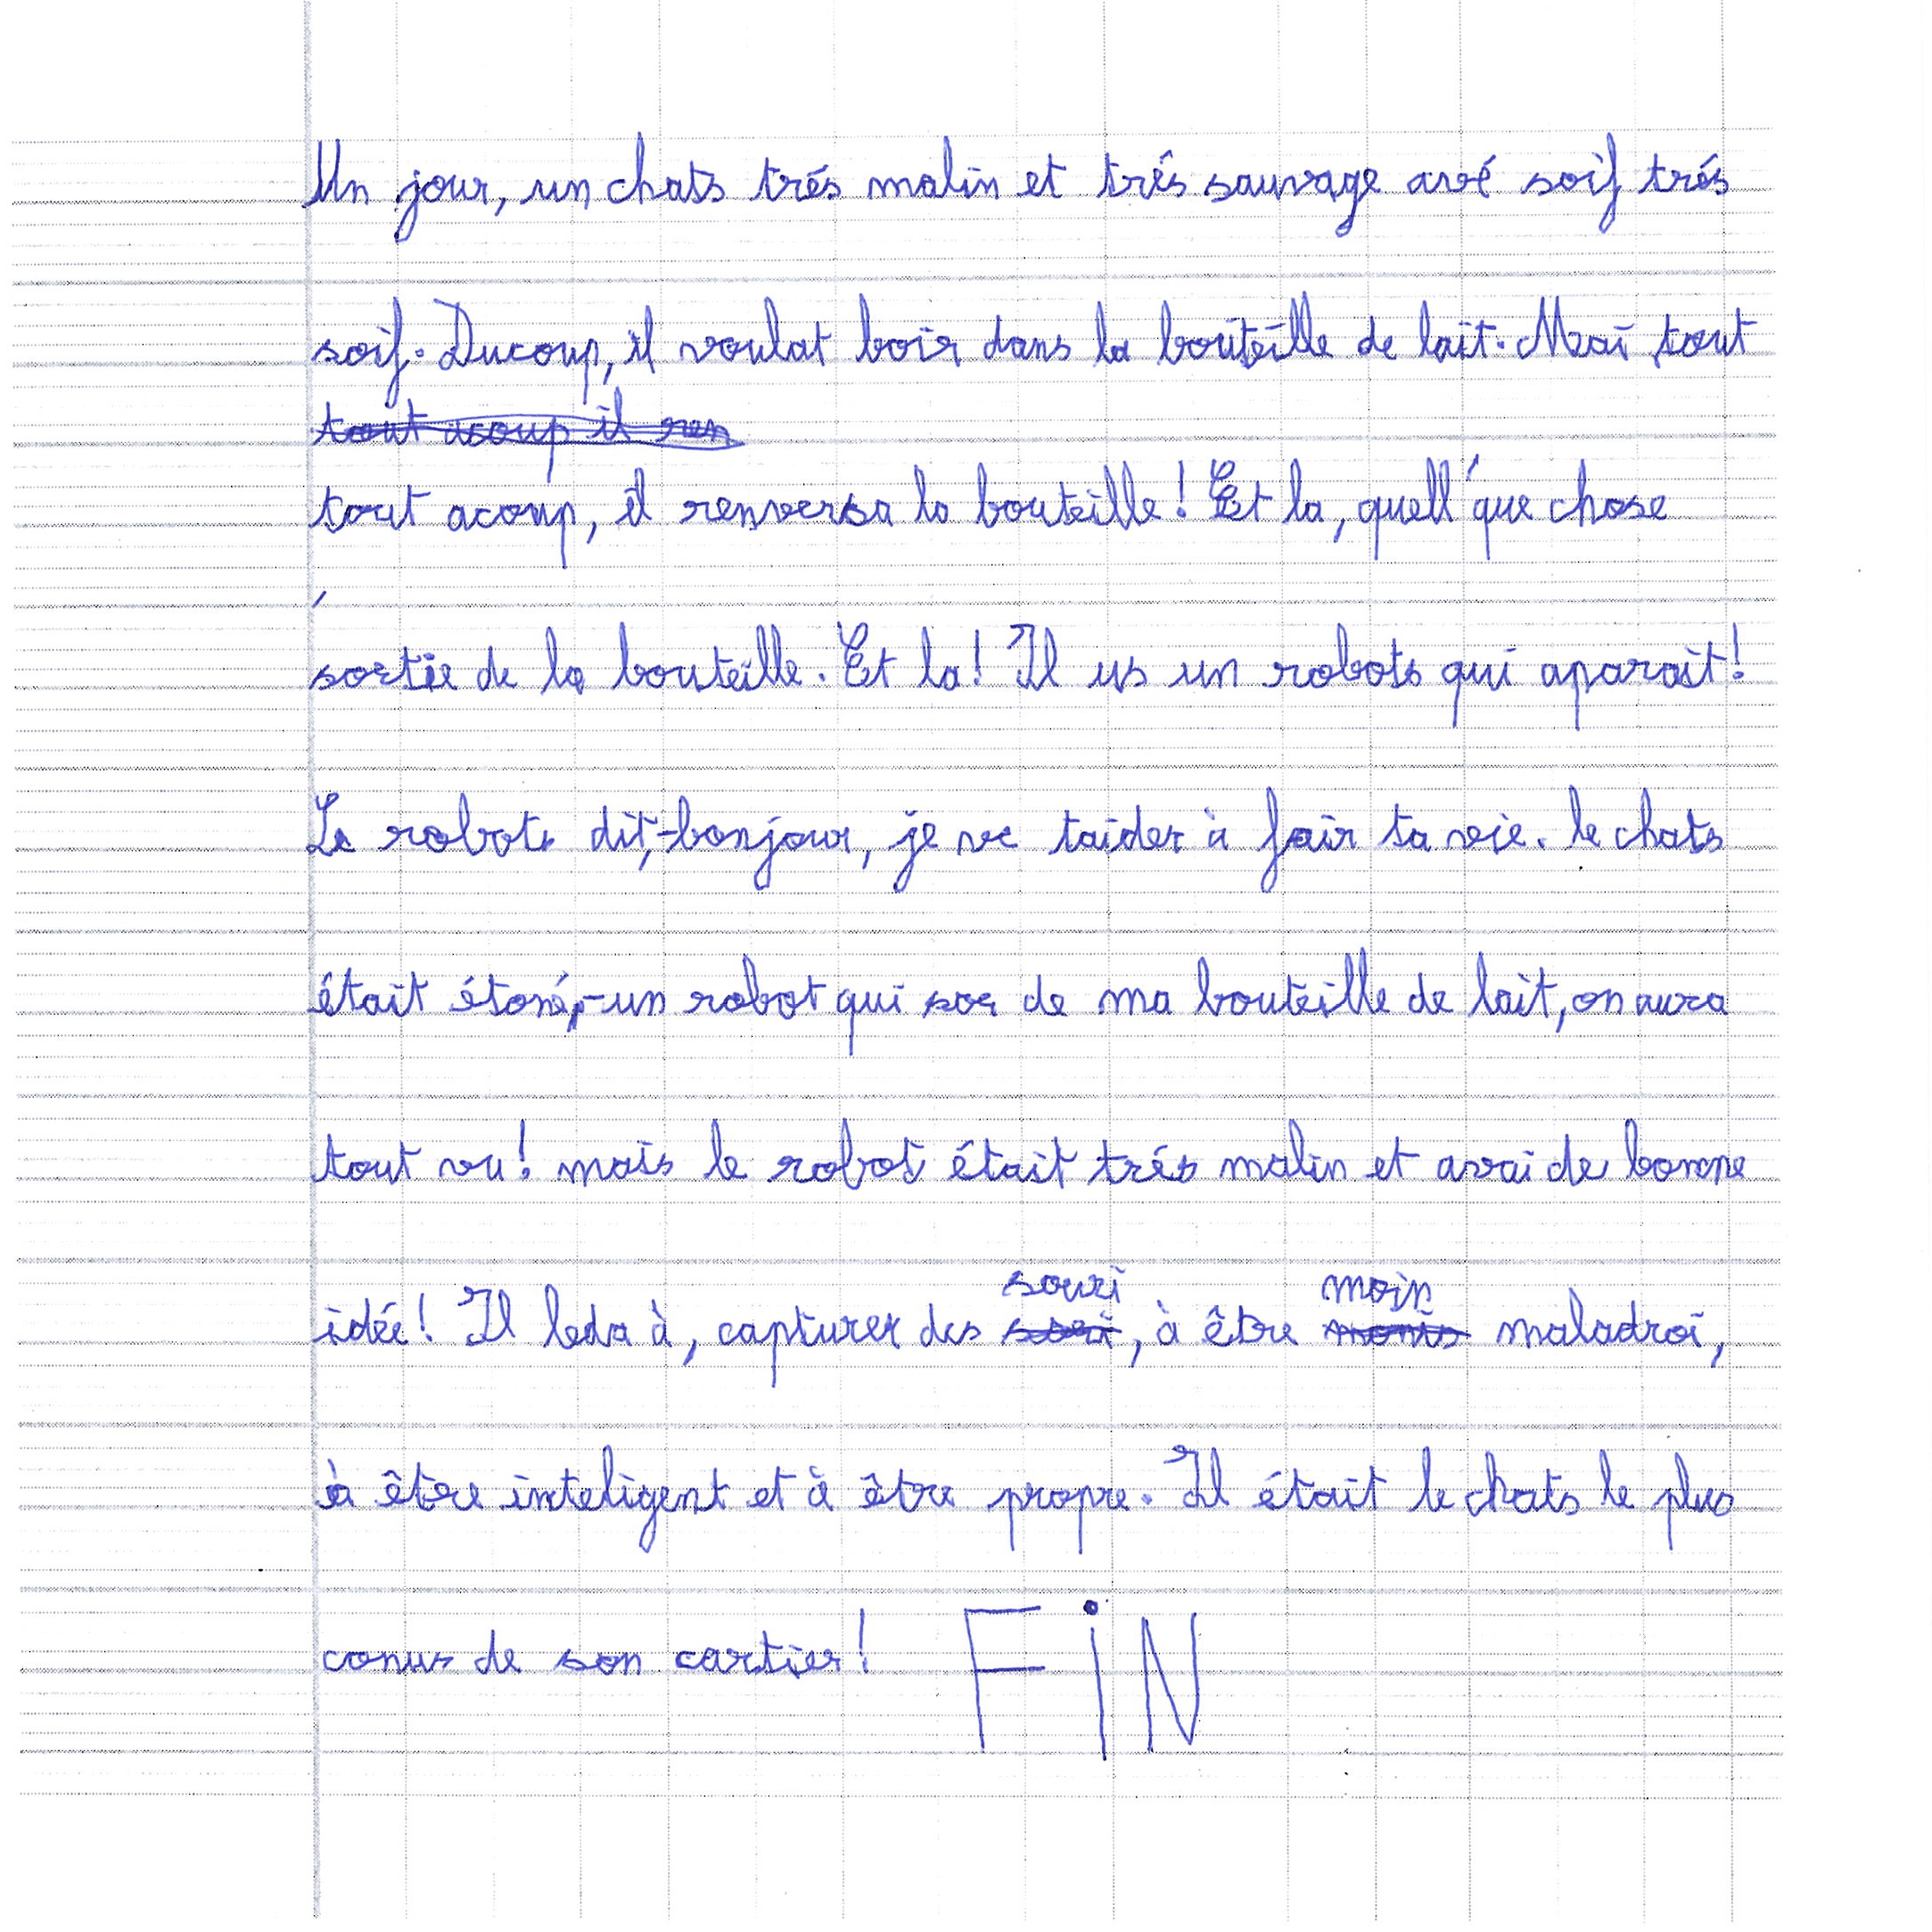 Un jour, un chats trés malin et trés sauvage avé soif trés
soif. Ducoup, il voulat boir dans la bouteille de lait. Mai tout
tout acoup il ren
tout acoup, il renversa la bouteille! Et la, quell'que chose
sortie de la bouteille. Et la! Il us un robots qui aparait!
Le robots dit,-bonjour, je ve taider à fair ta vie. le chats
était étoné,-un robot qui sor de ma bouteille de lait, on aura
tout vu! mais le robot était trés malin et avai de bonne
souri moin
idée! Il leda à, capturer des souri, à être moins maladroi,
à être inteligent et à être propre. Il était le chats le plus
conus de son cartier! FiN